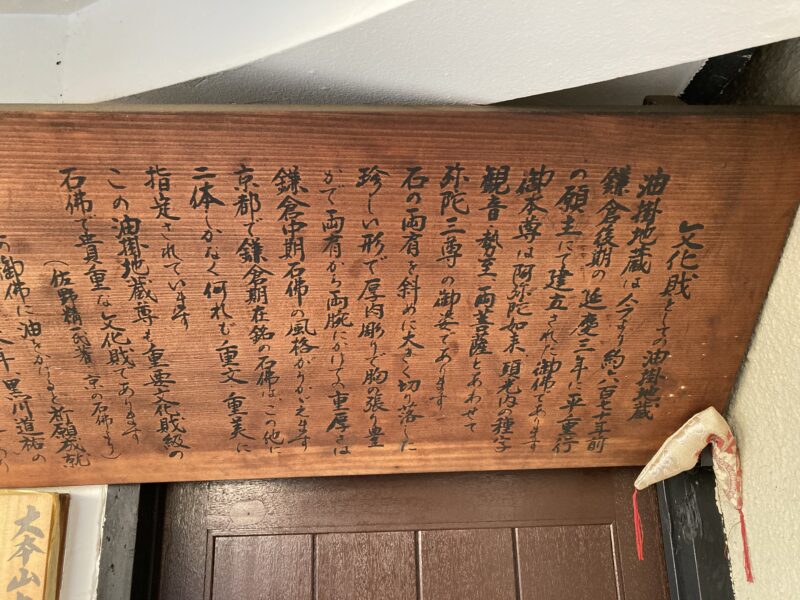 文化財としての油掛地蔵
油掛地蔵は今より約六百七十年前
鎌倉後期の延慶三年に平重行
の願主にて建立された御佛であります
御本尊は阿弥陀如来頭光内の種字
観音勢至両菩薩とあわせて
弥陀三尊の御姿であります
石の両肩を斜めに大きく切り落した
珍しい形で厚肉彫りで胸の張り豊
かで両肩から両腕にかけての重厚さは
鎌倉中期石佛の風格がうかがえます
京都で鎌倉期在銘の石佛は、この他に
二体しかなく何れも重文 重美に
指定されています
この油掛地蔵尊も重要文化財級の
石佛で貴重な文化財であります
(佐野精一氏著 京の石佛より)
この御佛に油をかけると祈願成就
年、黒川道祐の
大本山